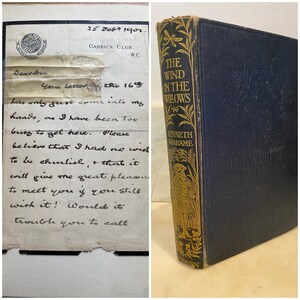 25 Feby 1908.
GARRICK CLUB.
W.C.
Your letter of the 16th
has only just come into my
hands, as I have been too
busy to get here. Please
believe that I had no wish
to be churlish, & that it
will give me great pleasure
to meet you if you still
wish it! Would it
trouble you to call
THE
WIND
IN THE
WILLOWS
KENNETH
GRAHAME